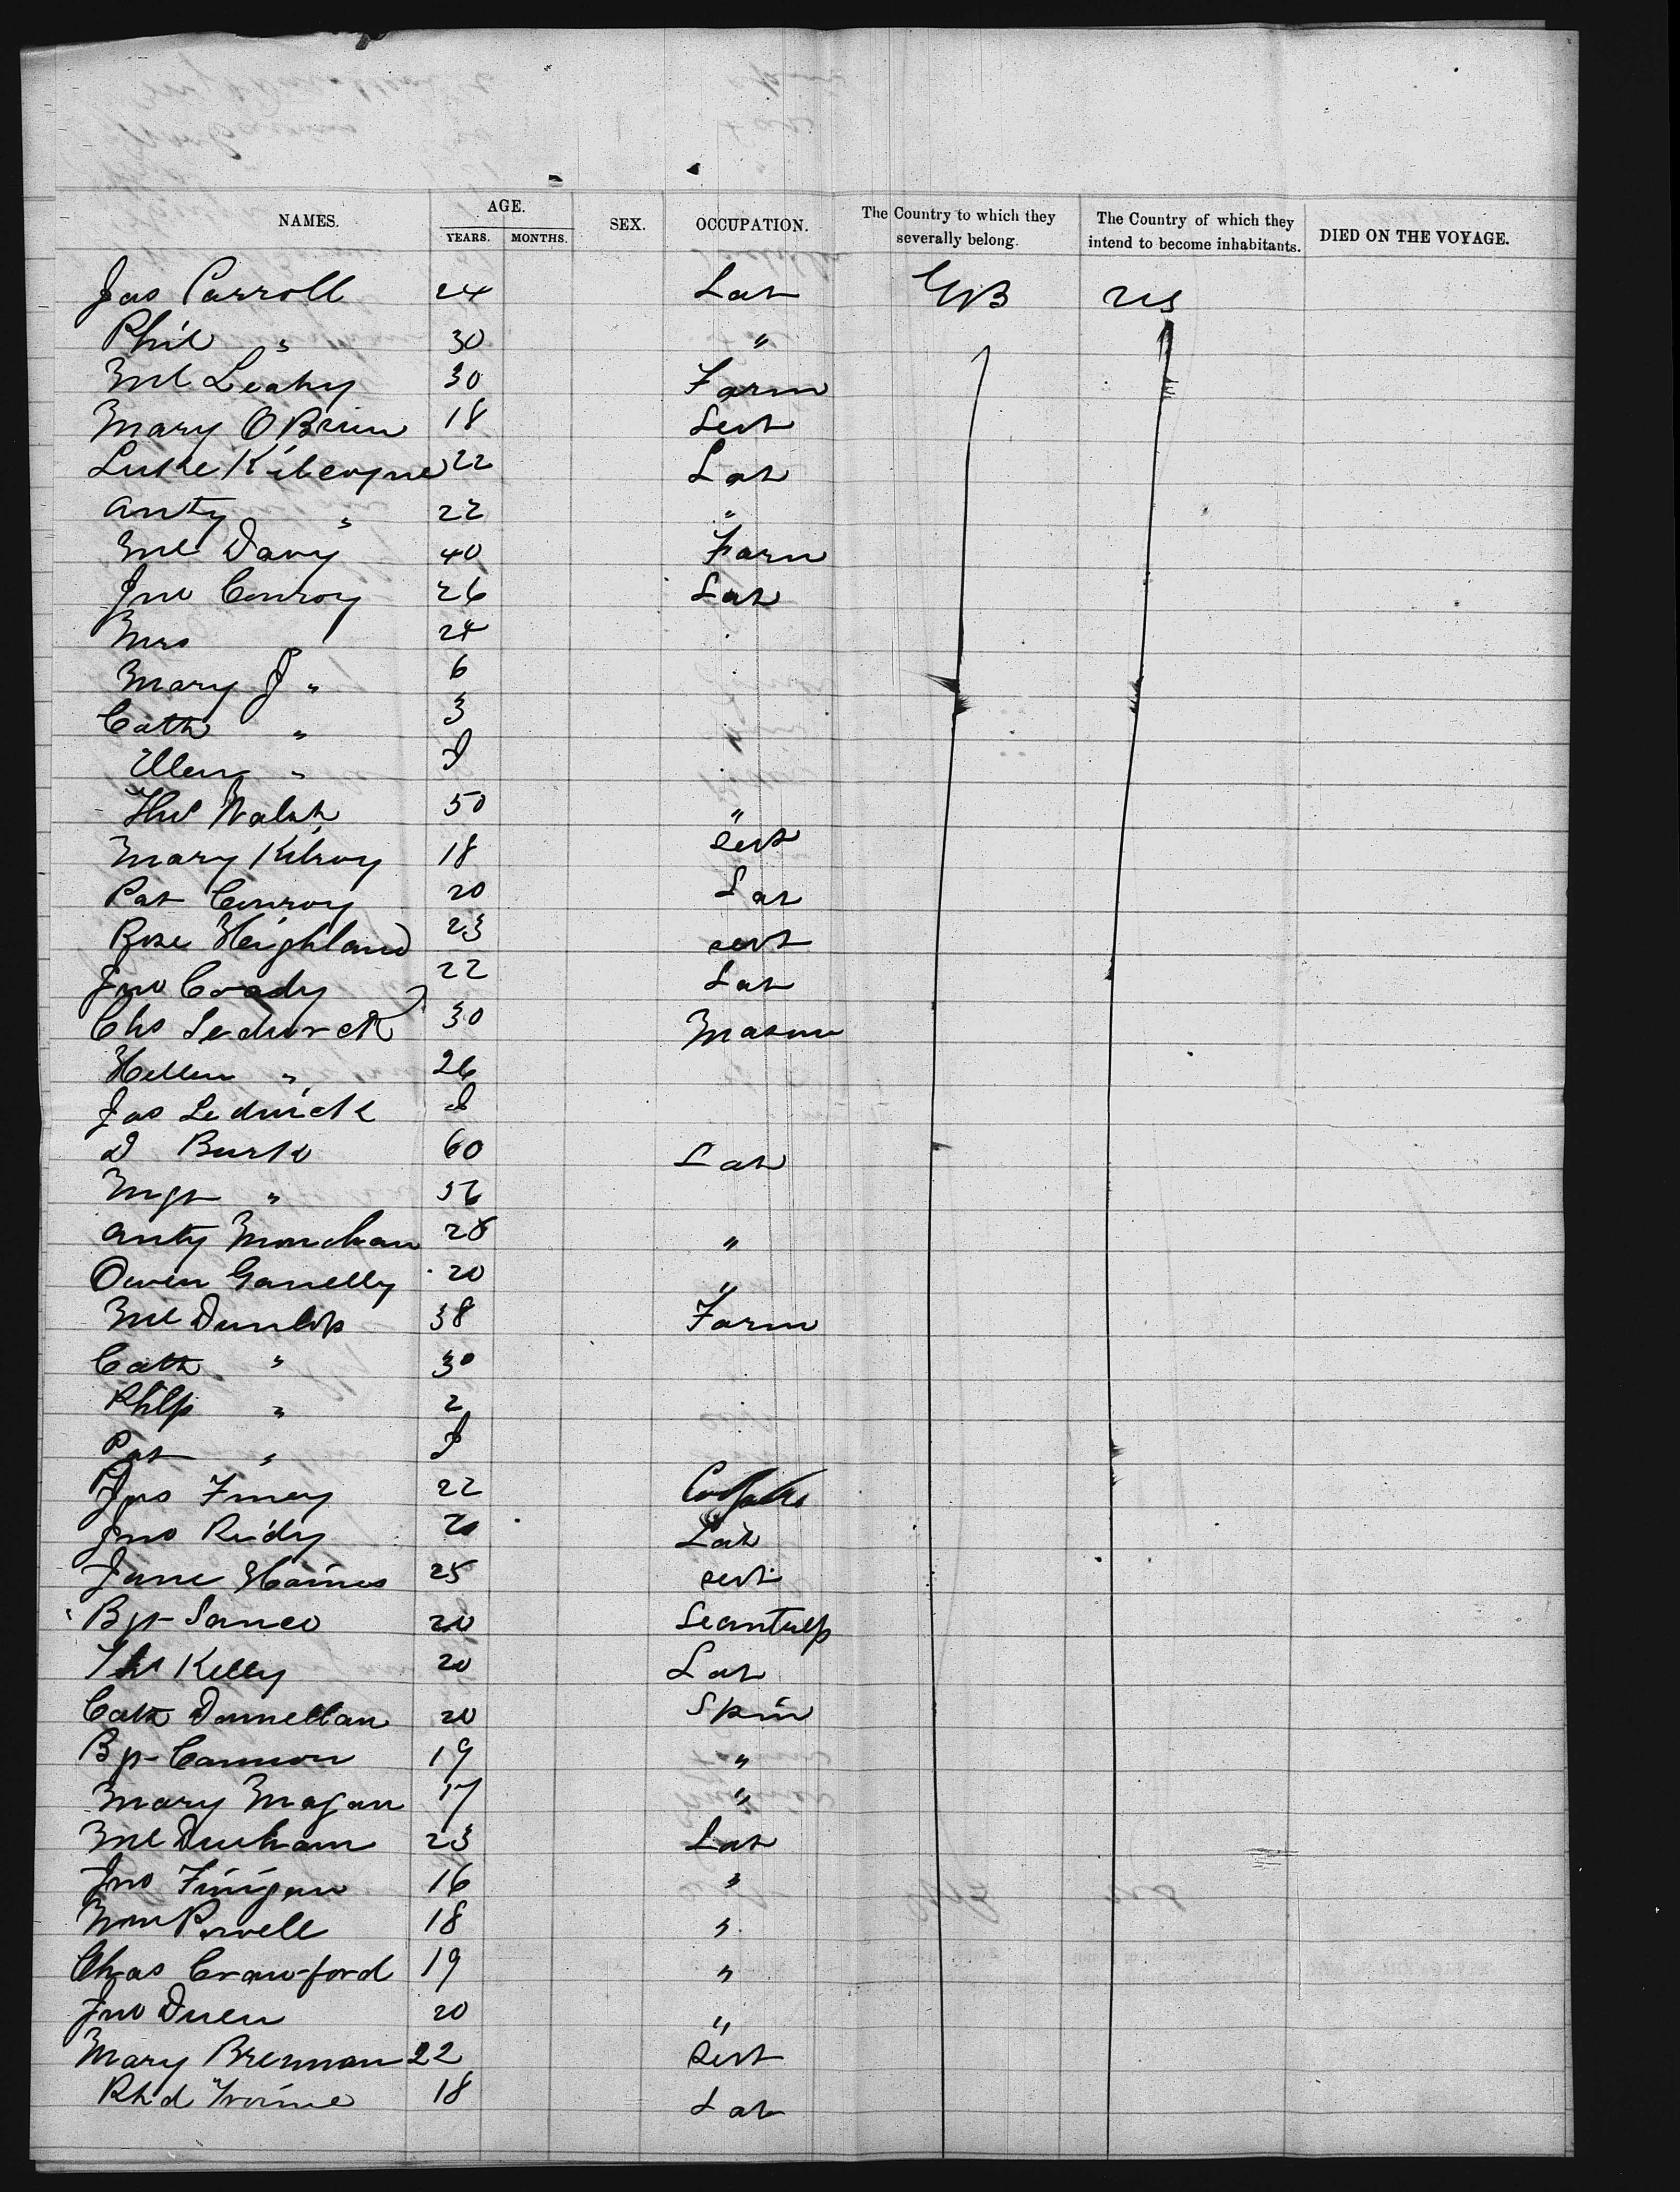 NAMES. AGE. YEARS. MONTHS. SEX. OCCUPATION. The Country to which they severally belong. The Country of which they intend to become inhabitants. DIED ON THE VOYAGE.
Jas Carroll 24 Lab GB US
Phil " 30 "
Ml Leahy 30 Farm
Mary O Brien 18 Servt
Luke Kilcoyne 22 Lab
Anty " 22 "
Ml Davy 40 Farm
Jno Conroy 26 Lab
Mrs 24
Mary J " 6
Cath " 3
Ellen " I
Ths Walsh 50 "
Mary Kilroy 18 Servt
Pat Conroy 20 Lab
Rose Heighland 23 servt
Jno Coady 22 Lab
Chs Ledwick 30 Mason
Hellen " 26
Jas Ledwick I
D Burke 60 Lab
Mgt " 56
Anty Monchan 28 "
Owen Ganelly 20 "
Ml Dunlop 38 Farm
Cath " 30
Philp " 2
Pat " I
Jas Finey 22
Jno Reidy 20 Lab
Jane Haines 25 servt
Bgt 20
Ths Kelly 20 Lab
Cath Donnellan 20 Spin
Bgt Cannon 19 "
Mary Magan 17 "
Ml Durham 23 Lab
Jno Finigan 16 "
Wm Powell 18 "
Chas Crawford 19 "
Jno Duen 20 "
Mary Brennan 22 Servt
Rhd 18 Lab